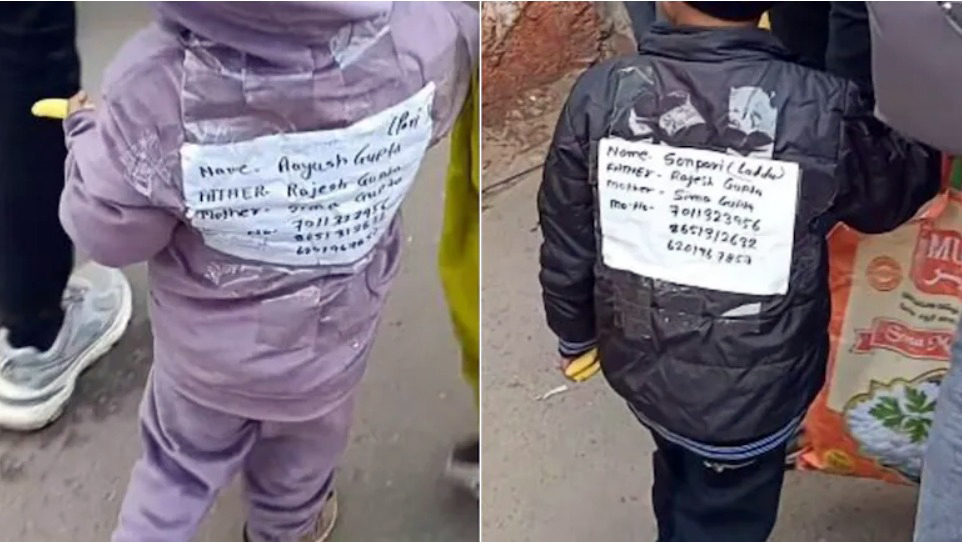 (Pari
Name- Aayush Gupta
FATHER- Rajesh Gupta
Mother- Sima Gupta
No- 7011323956
Name- Sonpari (Laddu)
FATHER- Rajesh Gupta
Mother- Sima Gupta
Mo-No- 7011323956
8651312632
6201967857
MU
Sona Ma